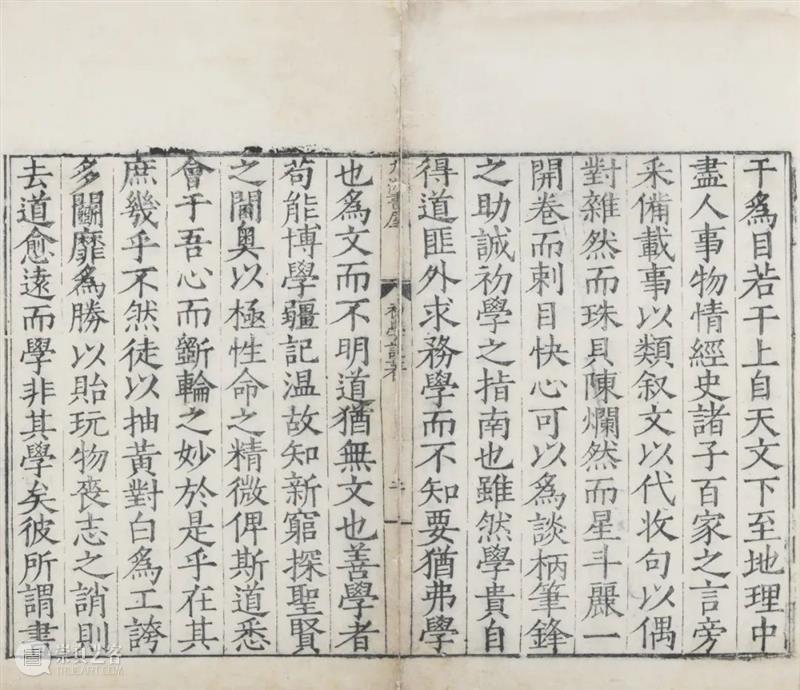 干爲目若干上自天文下至地理中
盡人事物情經史諸子百家之言旁
采備載事以類叙文以代收句以偶
對雜然而珠貝陳爛然而星斗麗一
開卷而刺目快心可以爲談柄筆鋒
之助誠初學之指南也雖然學貴自
得道匪外求務學而不知要猶弗學
初學記序
二
也爲文而不明道猶無文也善學者
苟能博學疆記温故知新窮探聖賢
之閫奥以極性命之精微俾斯道悉
會于吾心而斵輪之妙於是乎在其
庶幾乎不然徒以抽黃對白爲工誇
多鬭靡爲勝以貽玩物喪志之誚則
去道愈遠而學非其學矣彼所謂書
崇真艺客